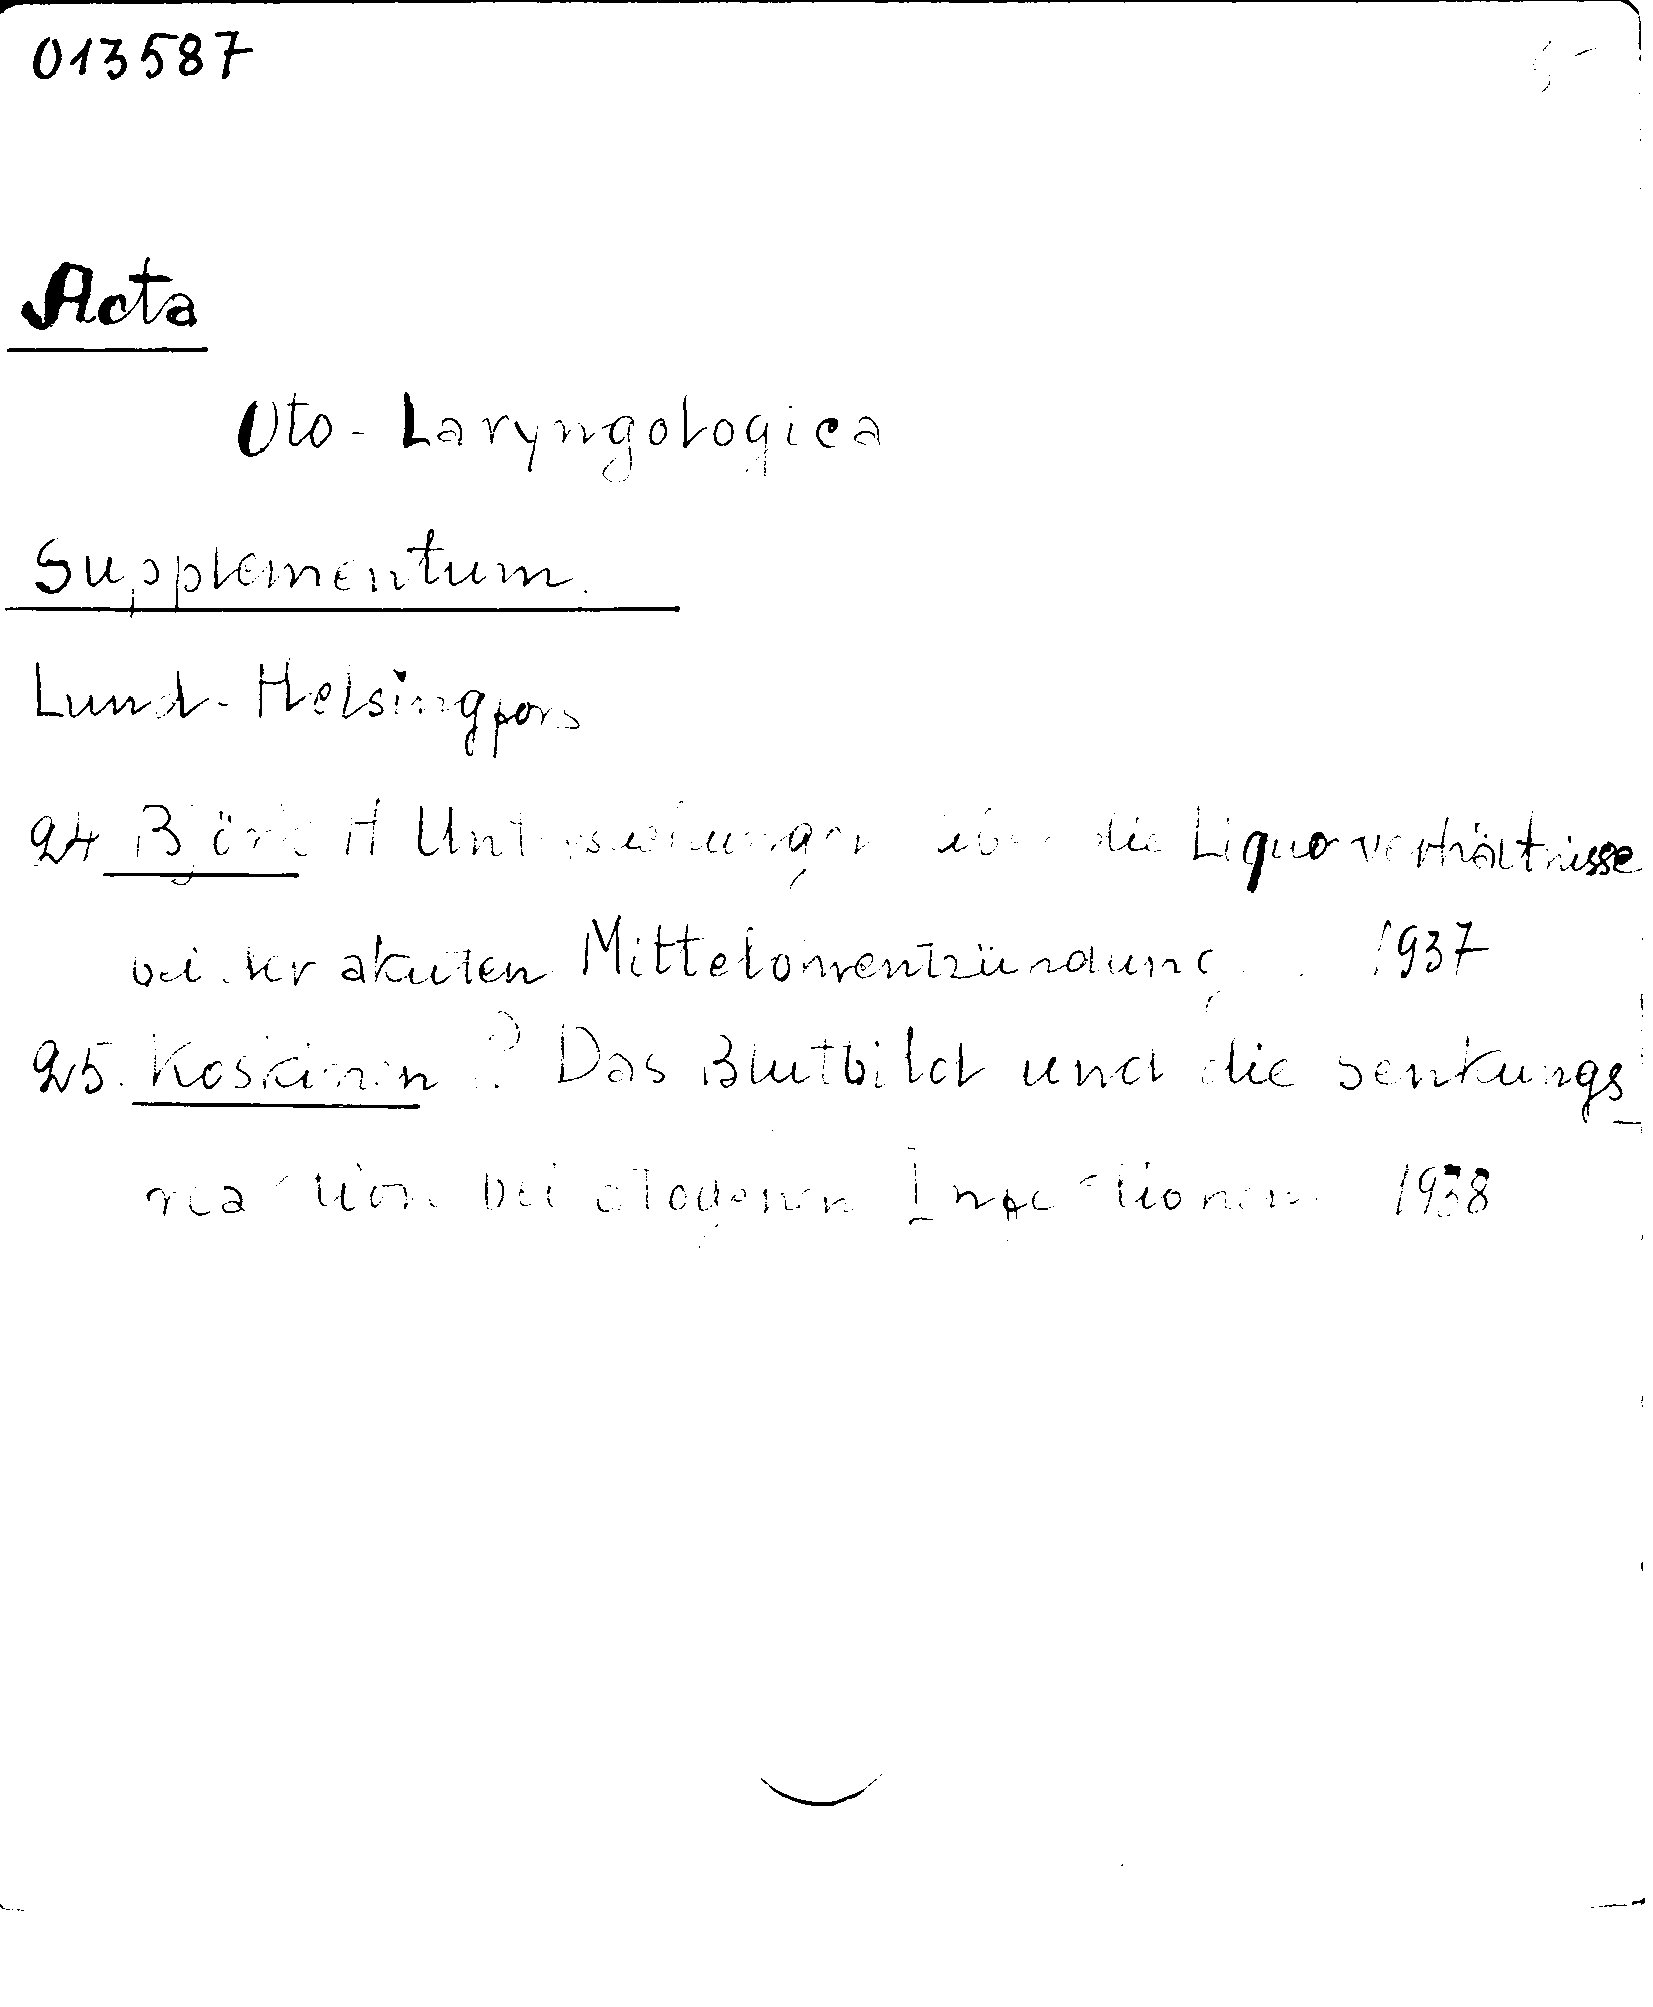 013587 5
Acta
Oto-Laryngologica
Supplementum.
Lund-Helsingfors
24 Björk H Untersuchungen über die Liquorverhältnisse
bei der akuten Mittelohrentzündung. 1937
25. Koskinen ? Das Blutbild und die Senkungs_
reaction bei otogenen Infectionen 1938